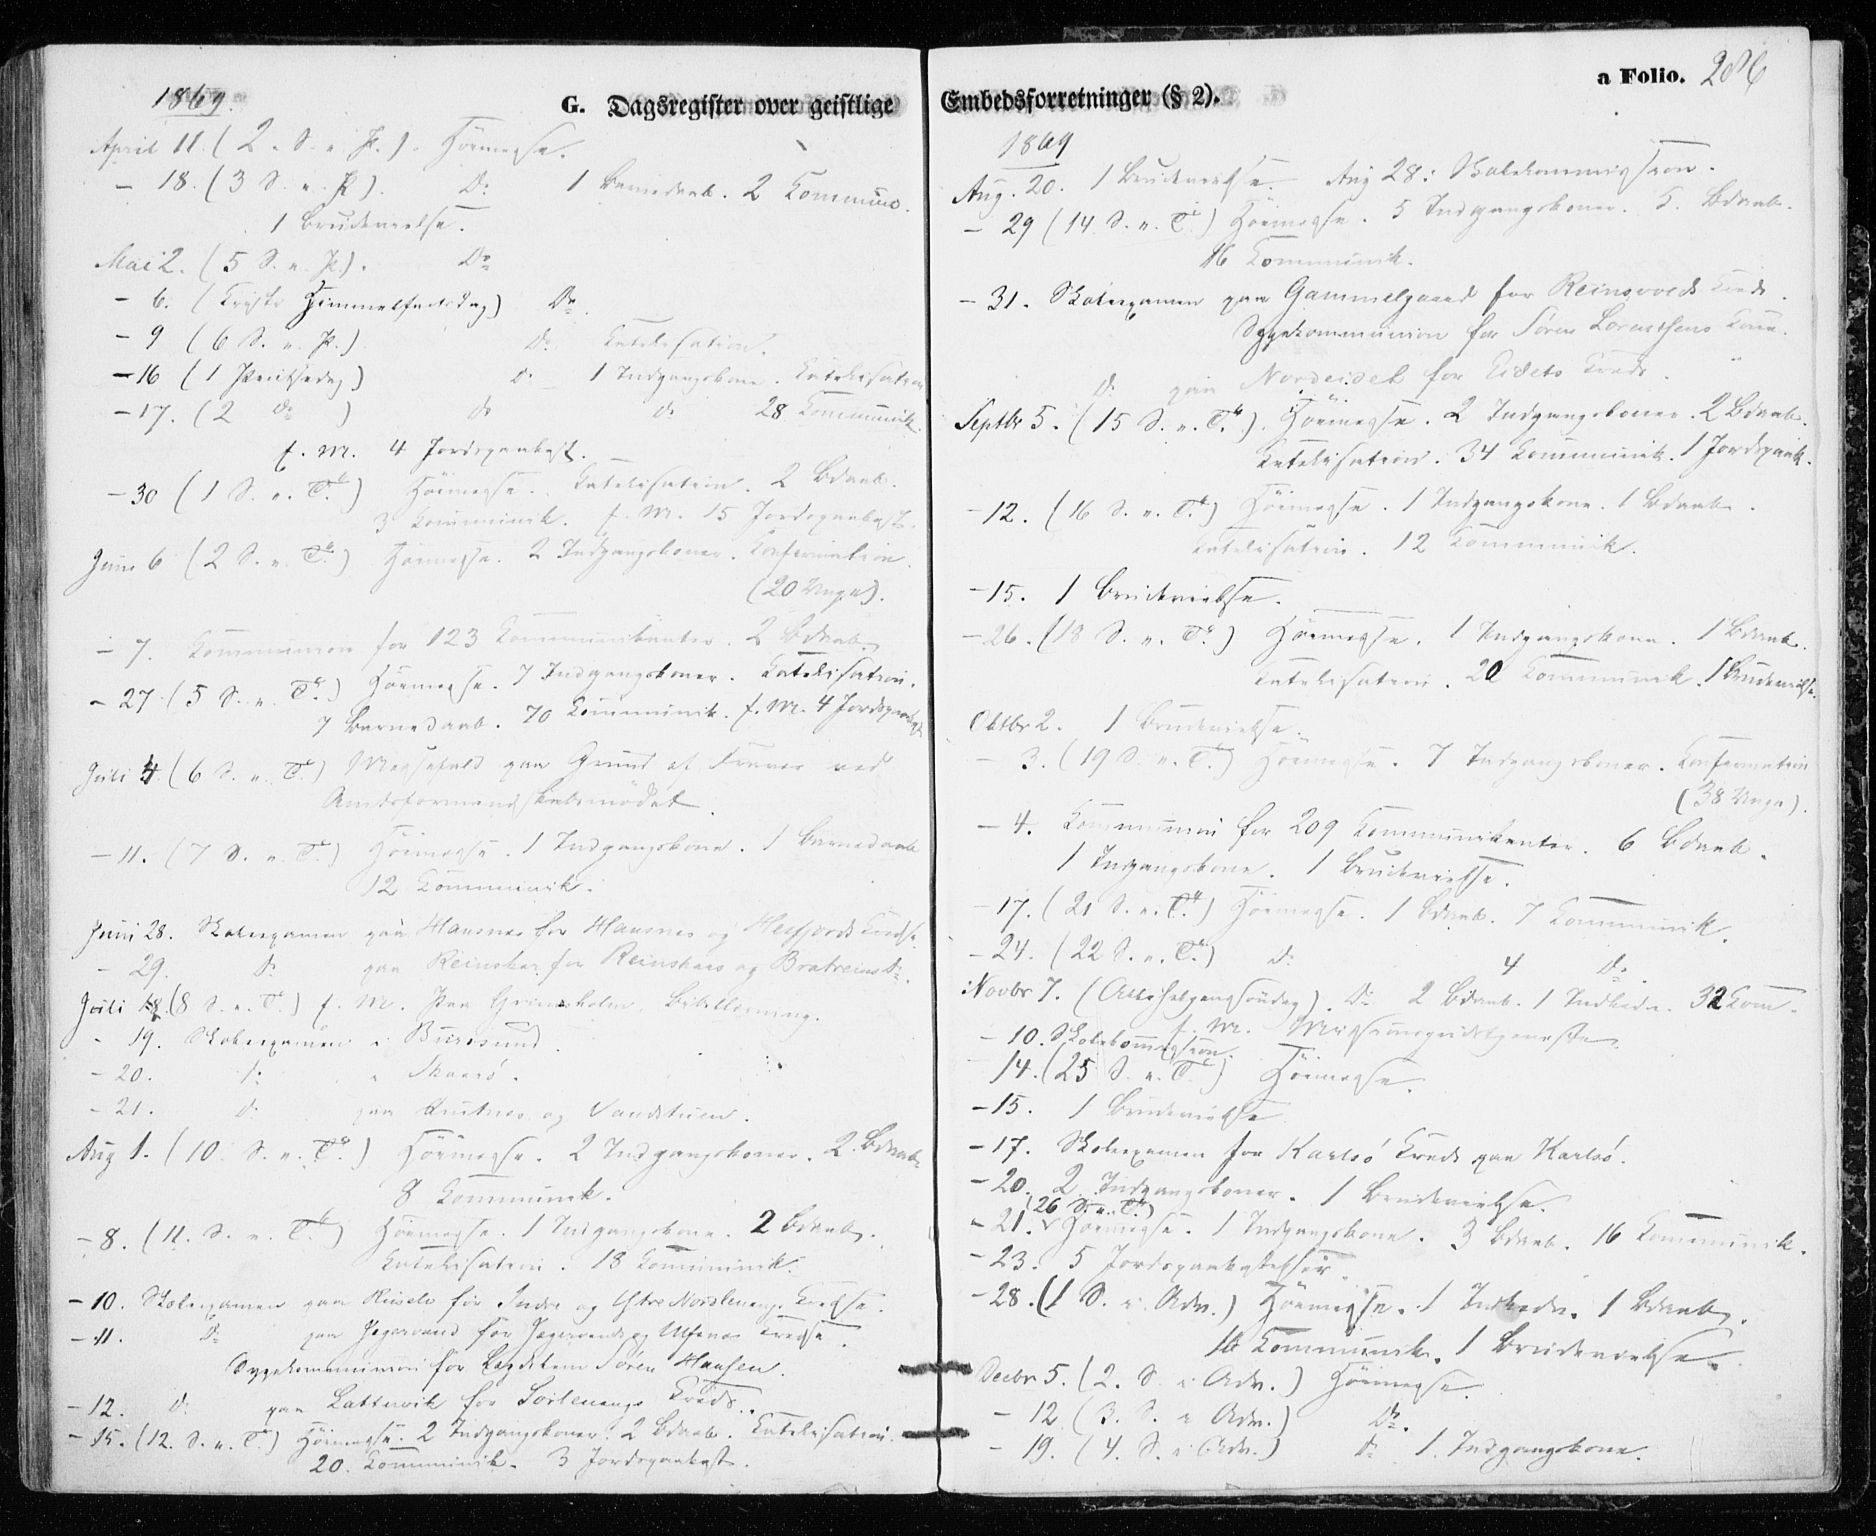 1869.
G. Dagsregister over geistlige
April 11. (2. S. e. P.). Höimesse.
— 18. (3 S. e. P.). Do 1 Barnedaab. 2 Kommuni.
1 Brudevielse.
Mai 2. (5 S. e. P.). Do
— 6. (Kristi Himmelfartsdag) Do
— 9 (6 S. e. P.) Do Katekisation.
— 16 (1 Pintsedag) Do 1 Indgangskone. Katekisation
— 17. (2 Do) Do Do 28 Kommunik.
f. M. 4 Jordspaakast.
— 30 (1 S. e. Tr.) Höimesse. Katekisation. 2 Bdaab.
3 Kommunik. f. M. 15 Jordspaakast.
Juni 6 (2 S. e. Tr.) Höimesse. 2 Indgangskoner. Konfirmation.
(20 Unge).
— 7. Kommunion for 123 Kommunikanter. 2 Bdaab.
— 27 (5 S. e. Tr.) Höimesse. 7 Indgangskoner. Katekisation.
7 Barnedaab. 70 Kommunik. f. M. 4 Jordspaakast
Juli 4 (6 S. e. Tr.) Messefald paa Grund af Fravær ved
Amtsformandskabsmödet.
— 11. (7 S. e. Tr.) Höimesse. 1 Indgangskone. 1 Barnedaab
12 Kommunik.
Juni 28. Skoleexamen paa Hansnes for Hansnes og Hesfjords Kredse.
— 29. Do paa Reinskar for Reinskars og Bratreins Do.
Juli 18. (8 S. e. Tr.) f. M. Paa Grimsholm. Bibellæsning.
— 19. Skoleexamen i Burösund.
— 20. Do i Skaarö.
— 21. Do paa og Vandstuen.
Aug 1. (10 S. e. Tr.) Höimesse. 2 Indgangskoner. 2 Bdaab.
8 Kommunik.
— 8. (11. S. e. Tr.) Höimesse. 1 Indgangskone. 2 Bdaab.
Katekisation. 18 Kommunik.
— 10. Skoleexamen paa for Indre og Ytre Nordlenangs Kredse.
— 11. Do paa Jegervand for Jegervands og Ulfsnes Kredse.
Sygekommunion for Søren Hansen.
— 12. Do paa Lattervik for Sörlenangs Kreds.
— 15. (12. S. e. Tr.) Höimesse. 2 Indgangskoner. 2 Bdaab. Katekisation.
20. Kommunik. 3 Jordspaakast.
Embedsforretninger (§ 2).
a Folio. 286
1869
Aug. 20. 1 Brudevielse. Aug 28: Skolekommission.
— 29 (14. S. e. Tr.) Höimesse. 5 Indgangskoner. 5. Bdaab.
16 Kommunik.
— 31. Skoleexamen paa Gammelgaard for Reinsvolds Kreds.
Sygekommunion for Søren Lorentsens Kone.
Do paa Nordeidet for Eidets Kreds.
Septbr 5. (15 S. e. Tr.). Höimesse. 2 Indgangskoner. 2 Bdaab.
Katekisation. 34 Kommunik. 1 Jordspaak.
— 12. (16 S. e. Tr.) Höimesse. 1 Indgangskone. 1 Bdaab.
Katekisation. 12 Kommunik.
— 15. 1 Brudevielse.
— 26. (18 S. e. Tr.) Höimesse. 1 Indgangskone. 1 Bdaab.
Katekisation. 20 Kommunik. 1 Brudevielse.
Oktbr 2. 1 Brudevielse.
— 3. (19 S. e. Tr.) Höimesse. 7 Indgangskoner. Konfirmation
(38 Unge).
— 4. Kommunion for 209 Kommunikanter. 6 Bdaab.
1 Indgangskone. 1 Brudevielse.
— 17. (21 S. e. Tr.) Höimesse. 1 Bdaab. 7 Kommunik.
— 24. (22 S. e. Tr.) Do 4 Do.
Novbr 7. (Allehelgensöndag). Do 2 Bdaab. 1 Indledn. 32 Kom.
f. M. Missionsgudstjeneste.
— 10. Skolekommission.
14. (25 S. e. Tr.) Höimesse.
— 15. 1 Brudevielse
— 17. Skoleexamen for Karlsö Kreds paa Karlsö.
— 20. 2 Indgangskoner. 1 Brudevielse.
(26 S. e. Tr.)
— 21. Höimesse. 1 Indgangskone. 3 Bdaab. 16 Kommunik.
— 23. 5 Jordspaakastelser.
— 28. (1 S. i Adv.) Höimesse. 1 Indledn. 1 Bdaab.
16 Kommunik. 1 Brudevielse.
Decbr 5. (2. S. i Adv.) Höimesse.
— 12 (3. S. i Adv.) Do.
— 19. (4. S. i Adv.) Do 1. Indgangskone.